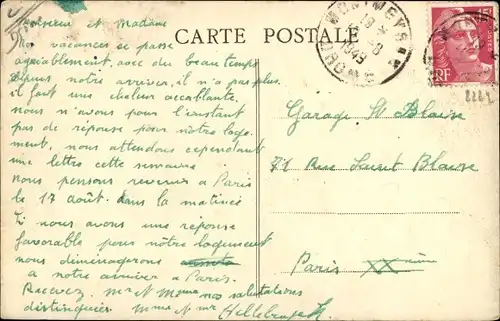 Monsieur et Madame
Nos vacances se passe
agréablement, avec du beau temps
depuis notre arriver, il n'a pas plus.
il fait une chaleur accablante,
nous n'avons pour l'instant
pas de réponse pour nôtre loge
ment, nous attendons cependant
une lettre cette semaine
nous pensons revenir a Paris
le 17 août. dans la matinée
Si nous avons une réponse
favorable pour nôtre logement
nous déménagerons
a notre arriver a Paris.
Recevez, Mr et Mme nos salutations
distinguées. Mme et Mr
CARTE POSTALE
NORD
1949
15F
RF
Garage St Blaise
71 Rue Saint Blaise
Paris XXème